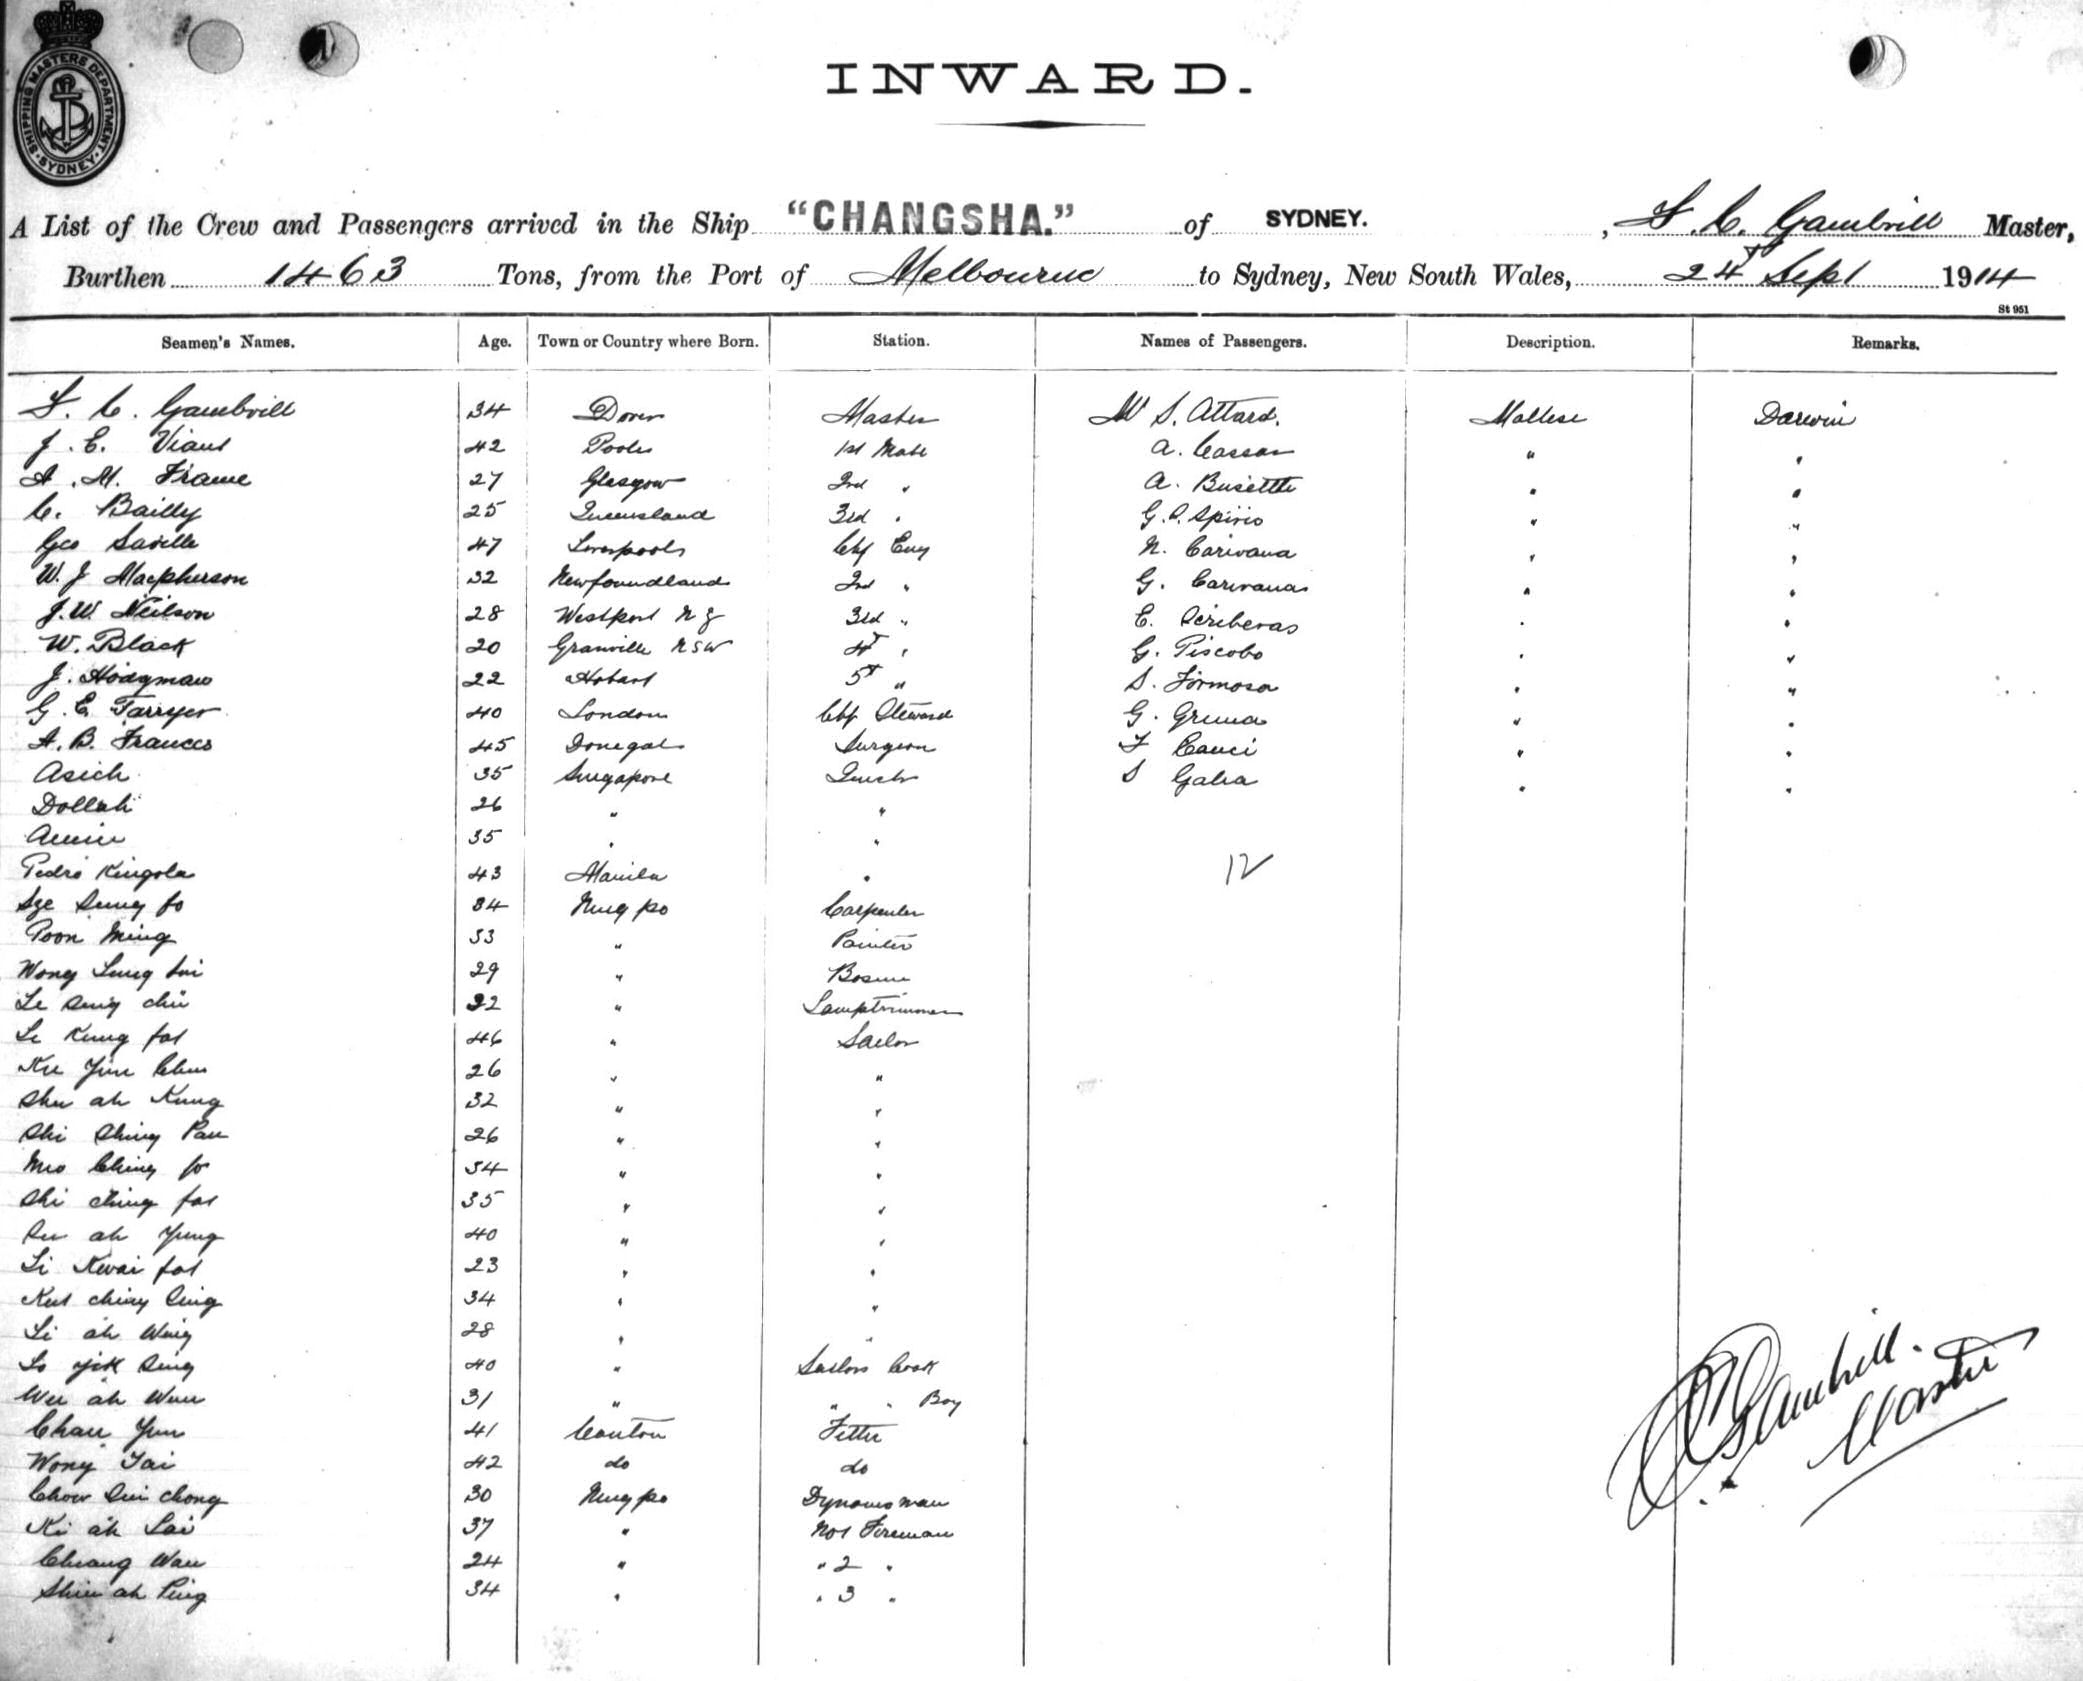 SHIPPING MASTERS DEPARTMENT · SYDNEY ·
INWARD.
A List of the Crew and Passengers arrived in the Ship "CHANGSHA." of SYDNEY. , Master,
Burthen 1463 Tons, from the Port of Melbourne to Sydney, New South Wales, 24th Sept 1914
St 951
Seamen's Names. Age. Town or Country where Born. Station. Names of Passengers. Description. Remarks.
Gambrill 34 Dover Master S. Attard. Maltese Darwin
J. E. Viant 42 Poole 1st Mate A. Cassar " "
A. M. Frame 27 Glasgow 2nd " A. " "
C. Bailly 25 Queensland 3rd " G. " "
Geo Saville 47 Liverpool Chf Eng N. Carivana " "
W. J Macpherson 32 Newfoundland 2nd " G. Carivanas " "
J. W. Neilson 28 Westport N Z 3rd " E. " "
W. Black 20 Granville NSW 4th " G. Piscobo " "
J. Hodgman 22 Hobart 5th " S. Formosa " "
G. E. Tarryer 40 London Chf Steward G. " "
A. B. Frances 45 Donegal Surgeon " "
Asich 35 Singapore S Galea " "
Dollah 26 " "
Amin 35 " "
Pedro Kingola 43 Manila " 12
Sze Sung fo 34 Ning po Carpenter
Poon Ming 33 " Painter
Wong Sung 29 " Bosun
32 " Lamptrimmer
Le Kung fat 46 " Sailor
26 " "
Shu ah Kung 32 " "
Shi Shing Pau 26 " "
Ching fo 34 " "
Shi Ching fat 35 " "
Su ah Yung 40 " "
Li Kwai fat 23 " "
Ching 34 " "
Li ah Wing 28 " "
40 " Sailors Cook
ah 31 " " " Boy
Chau Yun 41 Canton Fitter
Wong Tai 42 do do
Chow Sui Chong 30 Ning po Dynamo man
Ki ah Sai 37 " No 1 Fireman
Chuang Wau 24 " " 2 "
Shiu ah Ping 34 " " 3 "
Gambrill.
Master